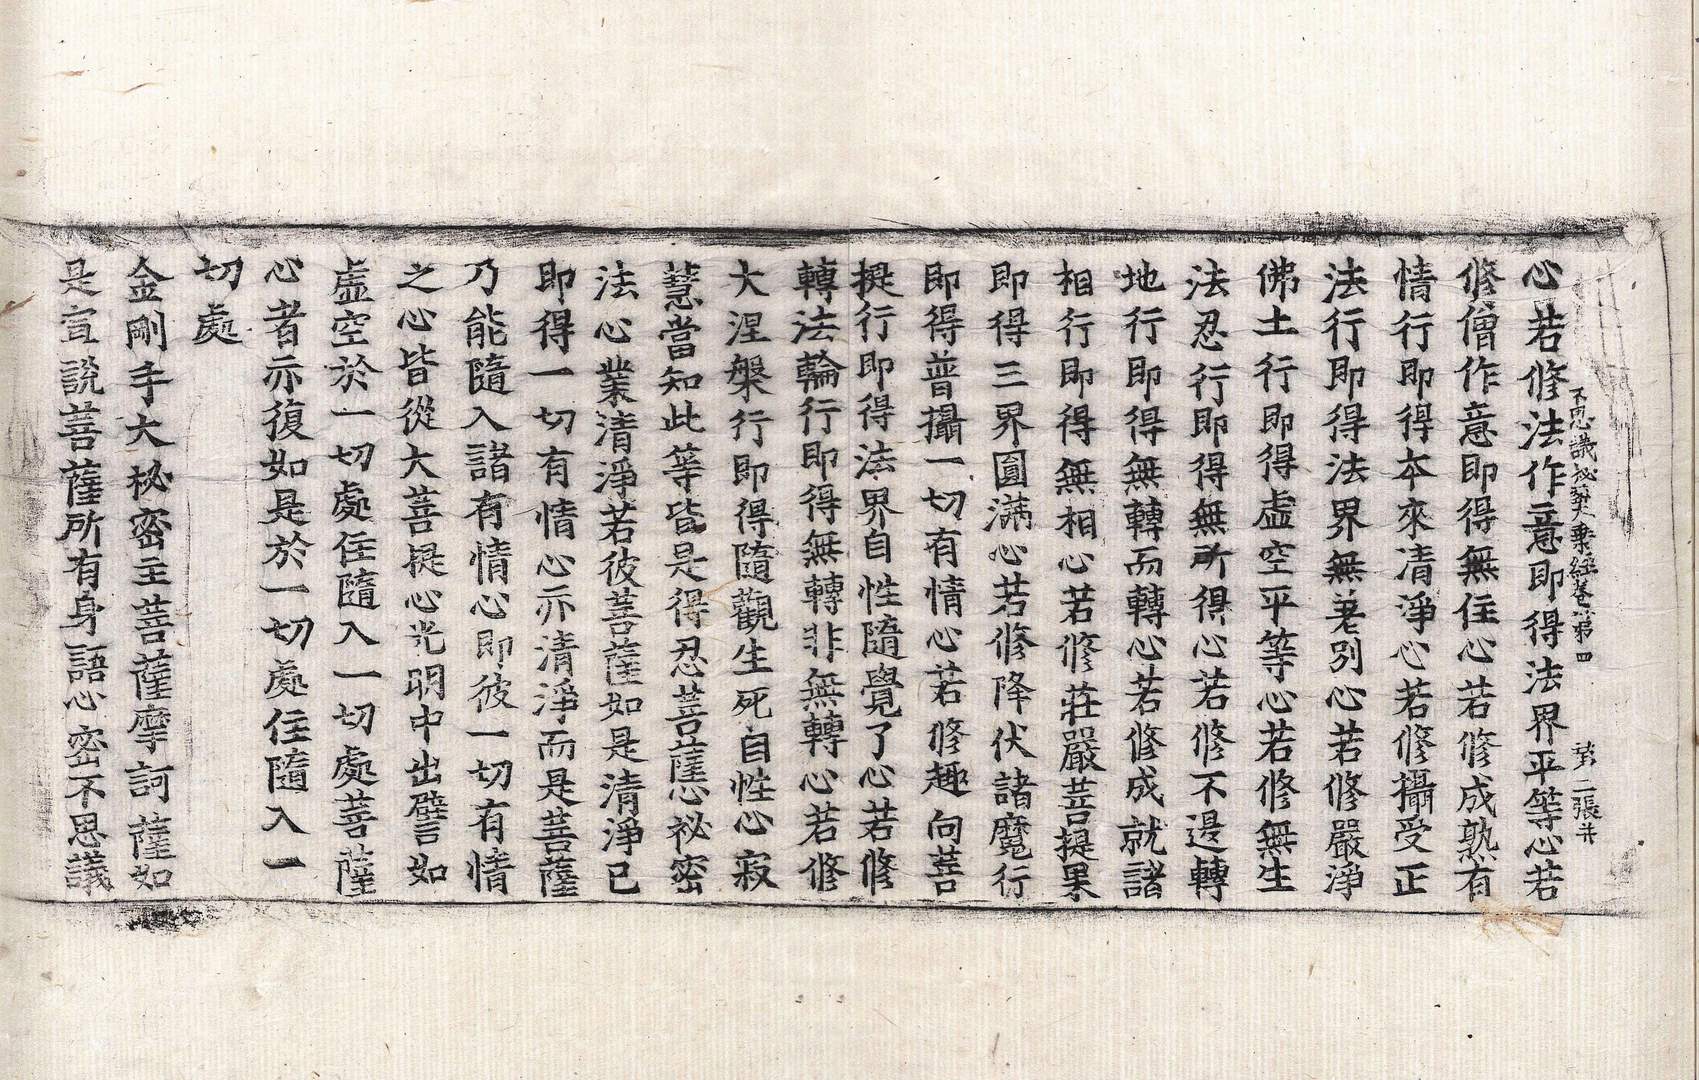 不思議秘密大乘經卷第四 第二張 并
心若修法作意即得法界平等心若
修僧作意即得無住心若修成熟有
情行即得本來清淨心若修攝受正
法行即得法界無差別心若修嚴淨
佛土行即得虛空平等心若修無生
法忍行即得無所得心若修不退轉
地行即得無轉而轉心若修成就諸
相行即得無相心若修莊嚴菩提果
即得三界圓滿心若修降伏諸魔行
即得普攝一切有情心若修趣向菩
提行即得法界自性隨覺了心若修
轉法輪行即得無轉非無轉心若修
大涅槃行即得隨觀生死自性心寂
慧當知此等皆是得忍菩薩心祕密
法心業清淨若彼菩薩如是清淨已
即得一切有情心亦清淨而是菩薩
乃能隨入諸有情心即彼一切有情
之心皆從大菩提心光明中出譬如
虛空於一切處住隨入一切處菩薩
心者亦復如是於一切處住隨入一
切處
金剛手大秘密主菩薩摩訶薩如
是宣說菩薩所有身語心密不思議